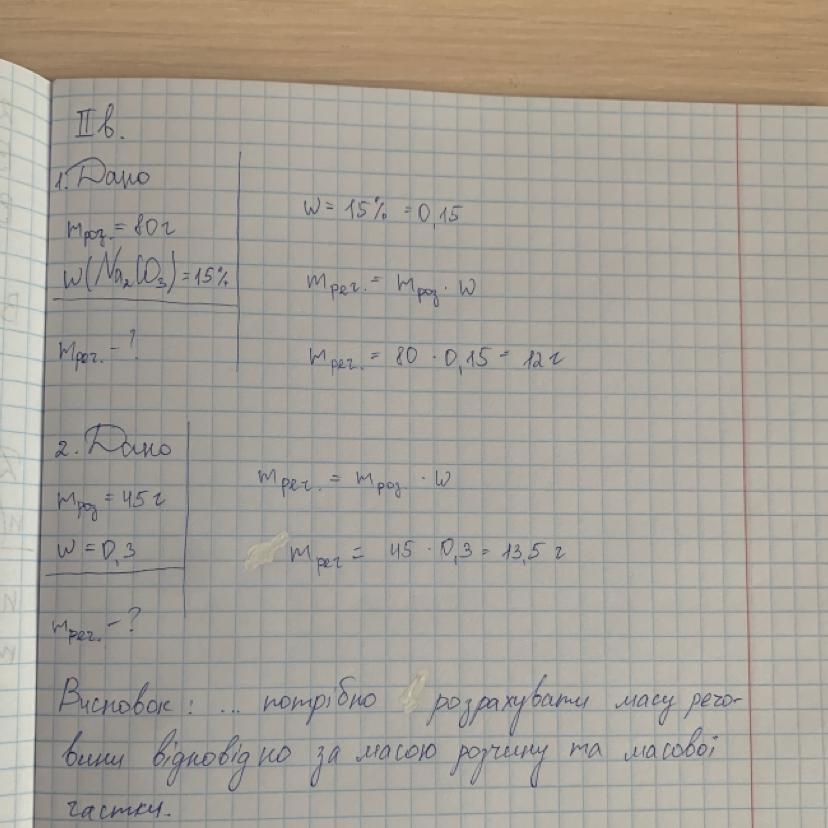 II в.
1. Дано
m роз. = 80 г
w(Na₂CO₃) = 15%
m реч. - ?
w = 15% = 0,15
m реч. = m роз. · w
m реч. = 80 · 0,15 = 12 г
2. Дано
m роз = 45 г
w = 0,3
m реч. - ?
m реч. = m роз. · w
m реч = 45 · 0,3 = 13,5 г
Висновок: ... потрібно розрахувати масу речо-
вини відповідно за масою розчину та масової
частки.